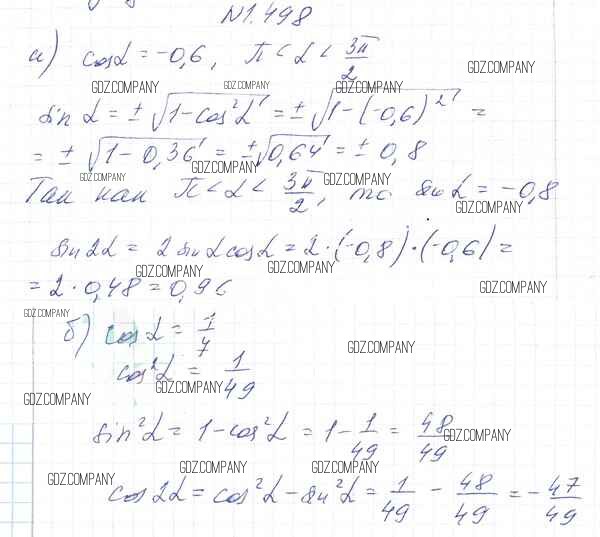 N1.498
а) cosα = -0,6, π < α < 3π/2
GDZ.COMPANY GDZ.COMPANY GDZ.COMPANY GDZ.COMPANY
sin α = ± √(1-cos²α) = ± √(1-(-0,6)²) =
= ± √(1-0,36) = ±√0,64 = ± 0,8
GDZ.COMPANY GDZ.COMPANY GDZ.COMPANY
Так как π < α < 3π/2, то sinα = -0,8
GDZ.COMPANY
sin2α = 2 sinα cosα = 2·(-0,8)·(-0,6) =
GDZ.COMPANY GDZ.COMPANY
= 2 · 0,48 = 0,96
GDZ.COMPANY
GDZ.COMPANY
б) cosα = 1/7
GDZ.COMPANY
cos²α = 1/49
GDZ.COMPANY GDZ.COMPANY
sin²α = 1-cos²α = 1 - 1/49 = 48/49
GDZ.COMPANY
GDZ.COMPANY GDZ.COMPANY GDZ.COMPANY
cos2α = cos²α - sin²α = 1/49 - 48/49 = - 47/49